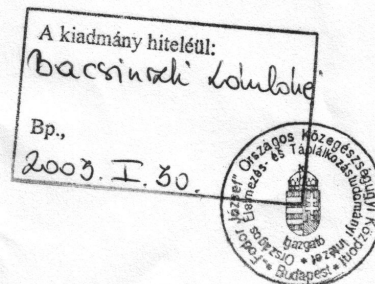 A kiadmány hiteléül:
Bacsinszki
Bp.,
2003. I. 30.
"Fodor József" Országos Közegészségügyi Központ
Országos Élelmezés- és Táplálkozástudományi Intézet
Igazgató
* Budapest *